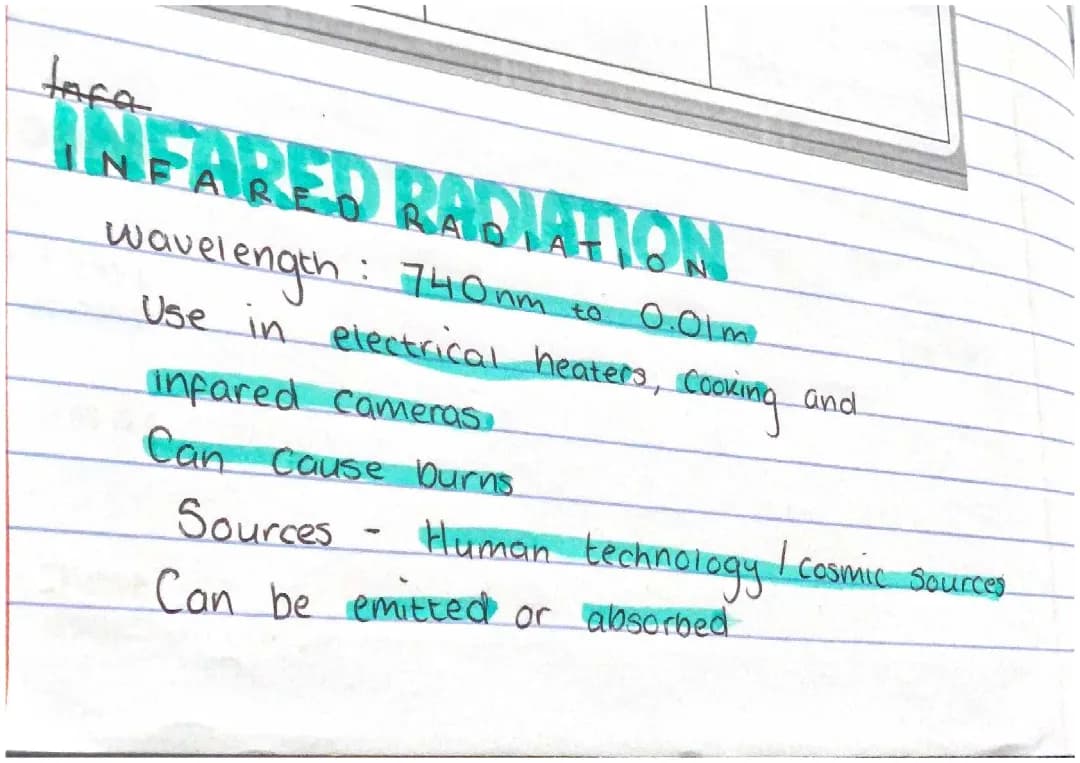 Infa
INFARED RADIATION
INFARED RADIATION
Wavelength : 740nm to 0.01m
Use in electrical heaters, cooking and
infared cameras.
Can cause burns
Sources - Human technology / cosmic sources
Can be emitted or absorbed